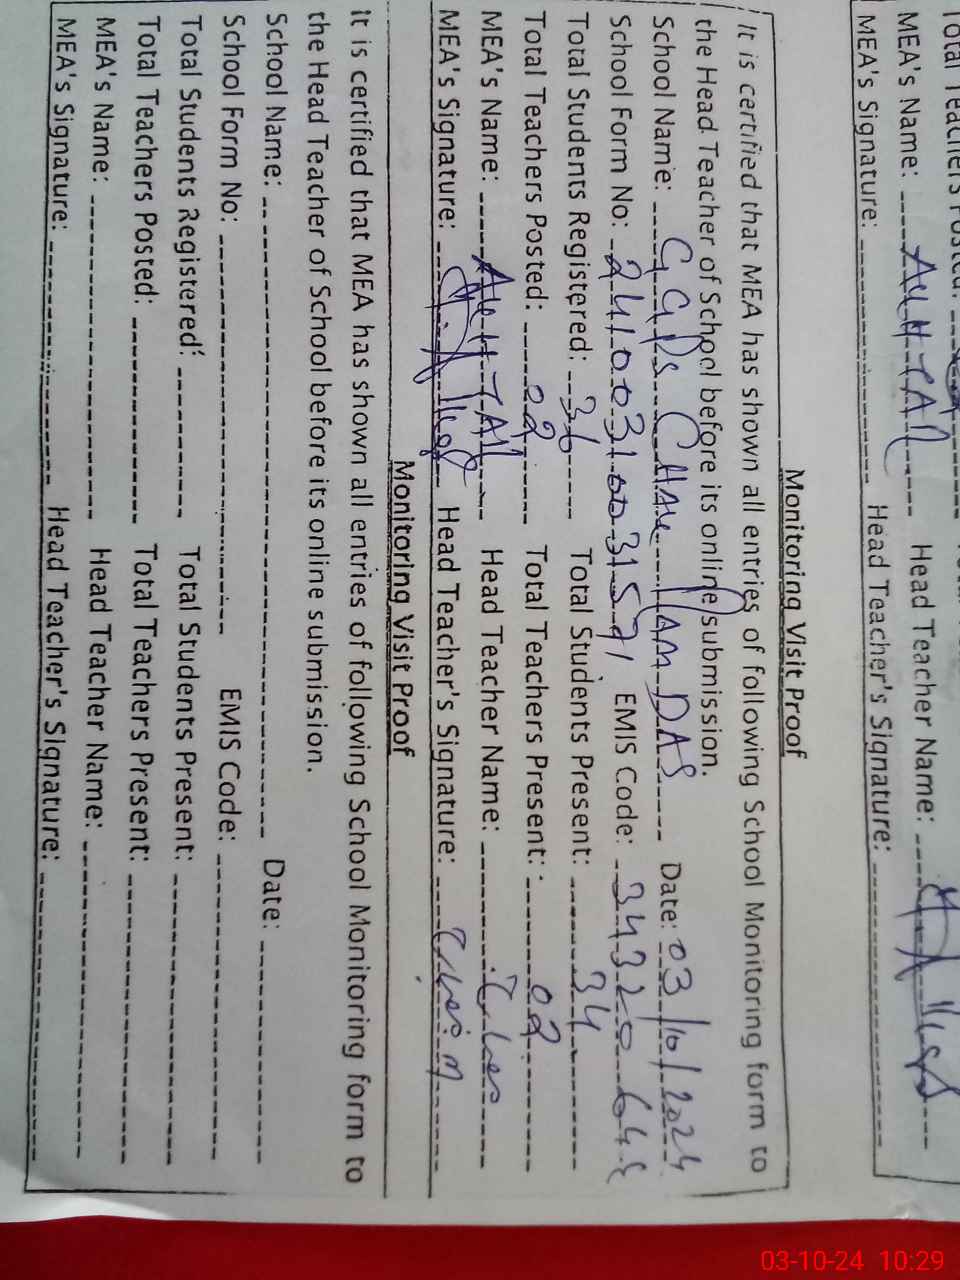 Total Teachers Posted:
MEA's Name: AKHTAR Head Teacher Name:
MEA's Signature: Head Teacher's Signature:
Monitoring Visit Proof
It is certified that MEA has shown all entries of following School Monitoring form to
the Head Teacher of School before its online submission.
School Name: GGPS CHAK RAM DAS Date: 03/10/2024
School Form No: EMIS Code:
Total Students Registered: 36 Total Students Present: 34
Total Teachers Posted: 02 Total Teachers Present: 02
MEA's Name: AKHTAR Head Teacher Name:
MEA's Signature: Head Teacher's Signature:
Monitoring Visit Proof
It is certified that MEA has shown all entries of following School Monitoring form to
the Head Teacher of School before its online submission.
School Name: Date:
School Form No: EMIS Code:
Total Students Registered: Total Students Present:
Total Teachers Posted: Total Teachers Present:
MEA's Name: Head Teacher Name:
MEA's Signature: Head Teacher's Signature:
03-10-24 10:29